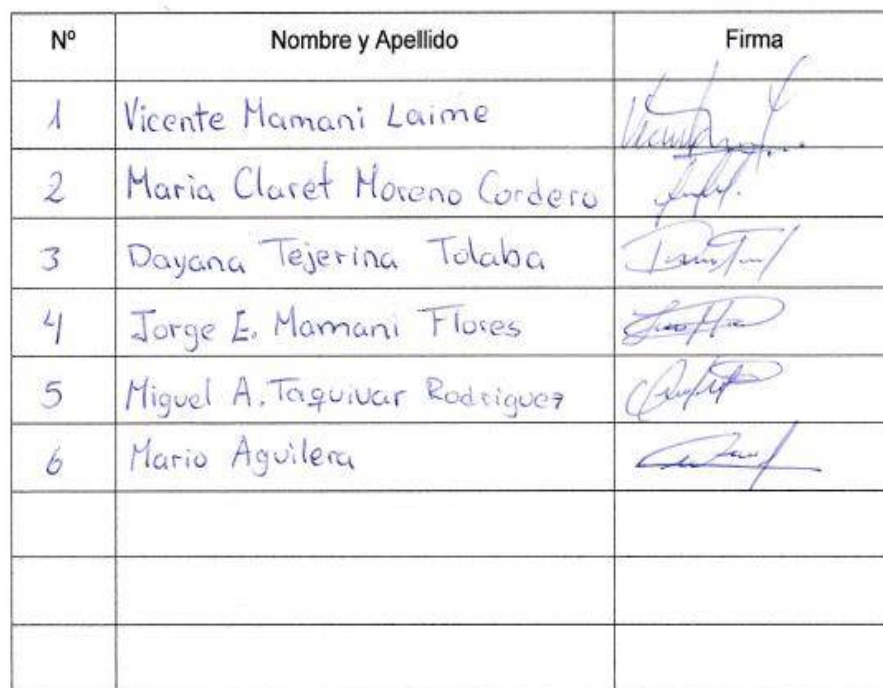 Nº Nombre y Apellido Firma
1 Vicente Mamani Laime
2 Maria Claret Moreno Cordero
3 Dayana Tejerina Tolaba
4 Jorge E. Mamani Flores
5 Miguel A. Taquivar Rodriguez
6 Mario Aguilera